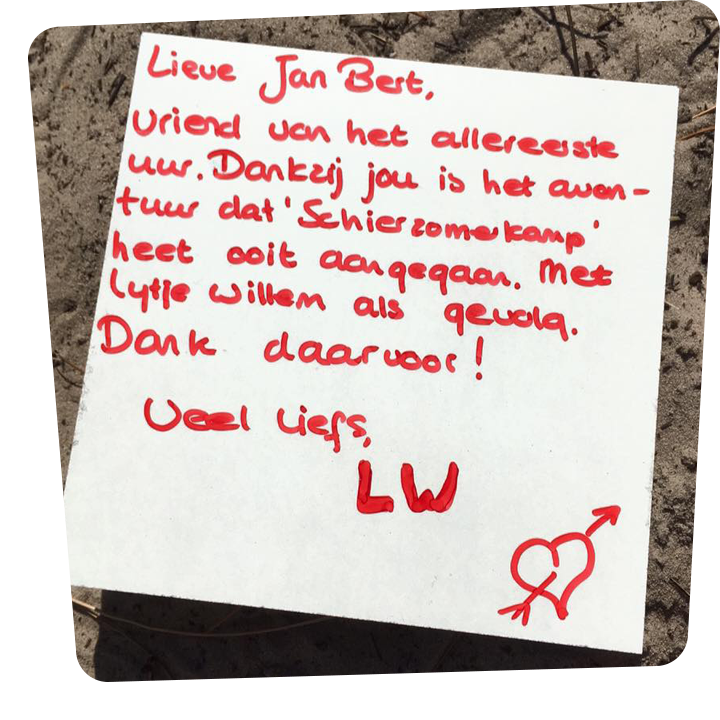 Lieve Jan Bert,
vriend van het allereerste
uur. Dankzij jou is het avon-
tuur dat 'Schierzomerkamp'
heet ooit aangegaan. Met
Lytje Willem als gevolg.
Dank daarvoor!
Veel Liefs,
LW